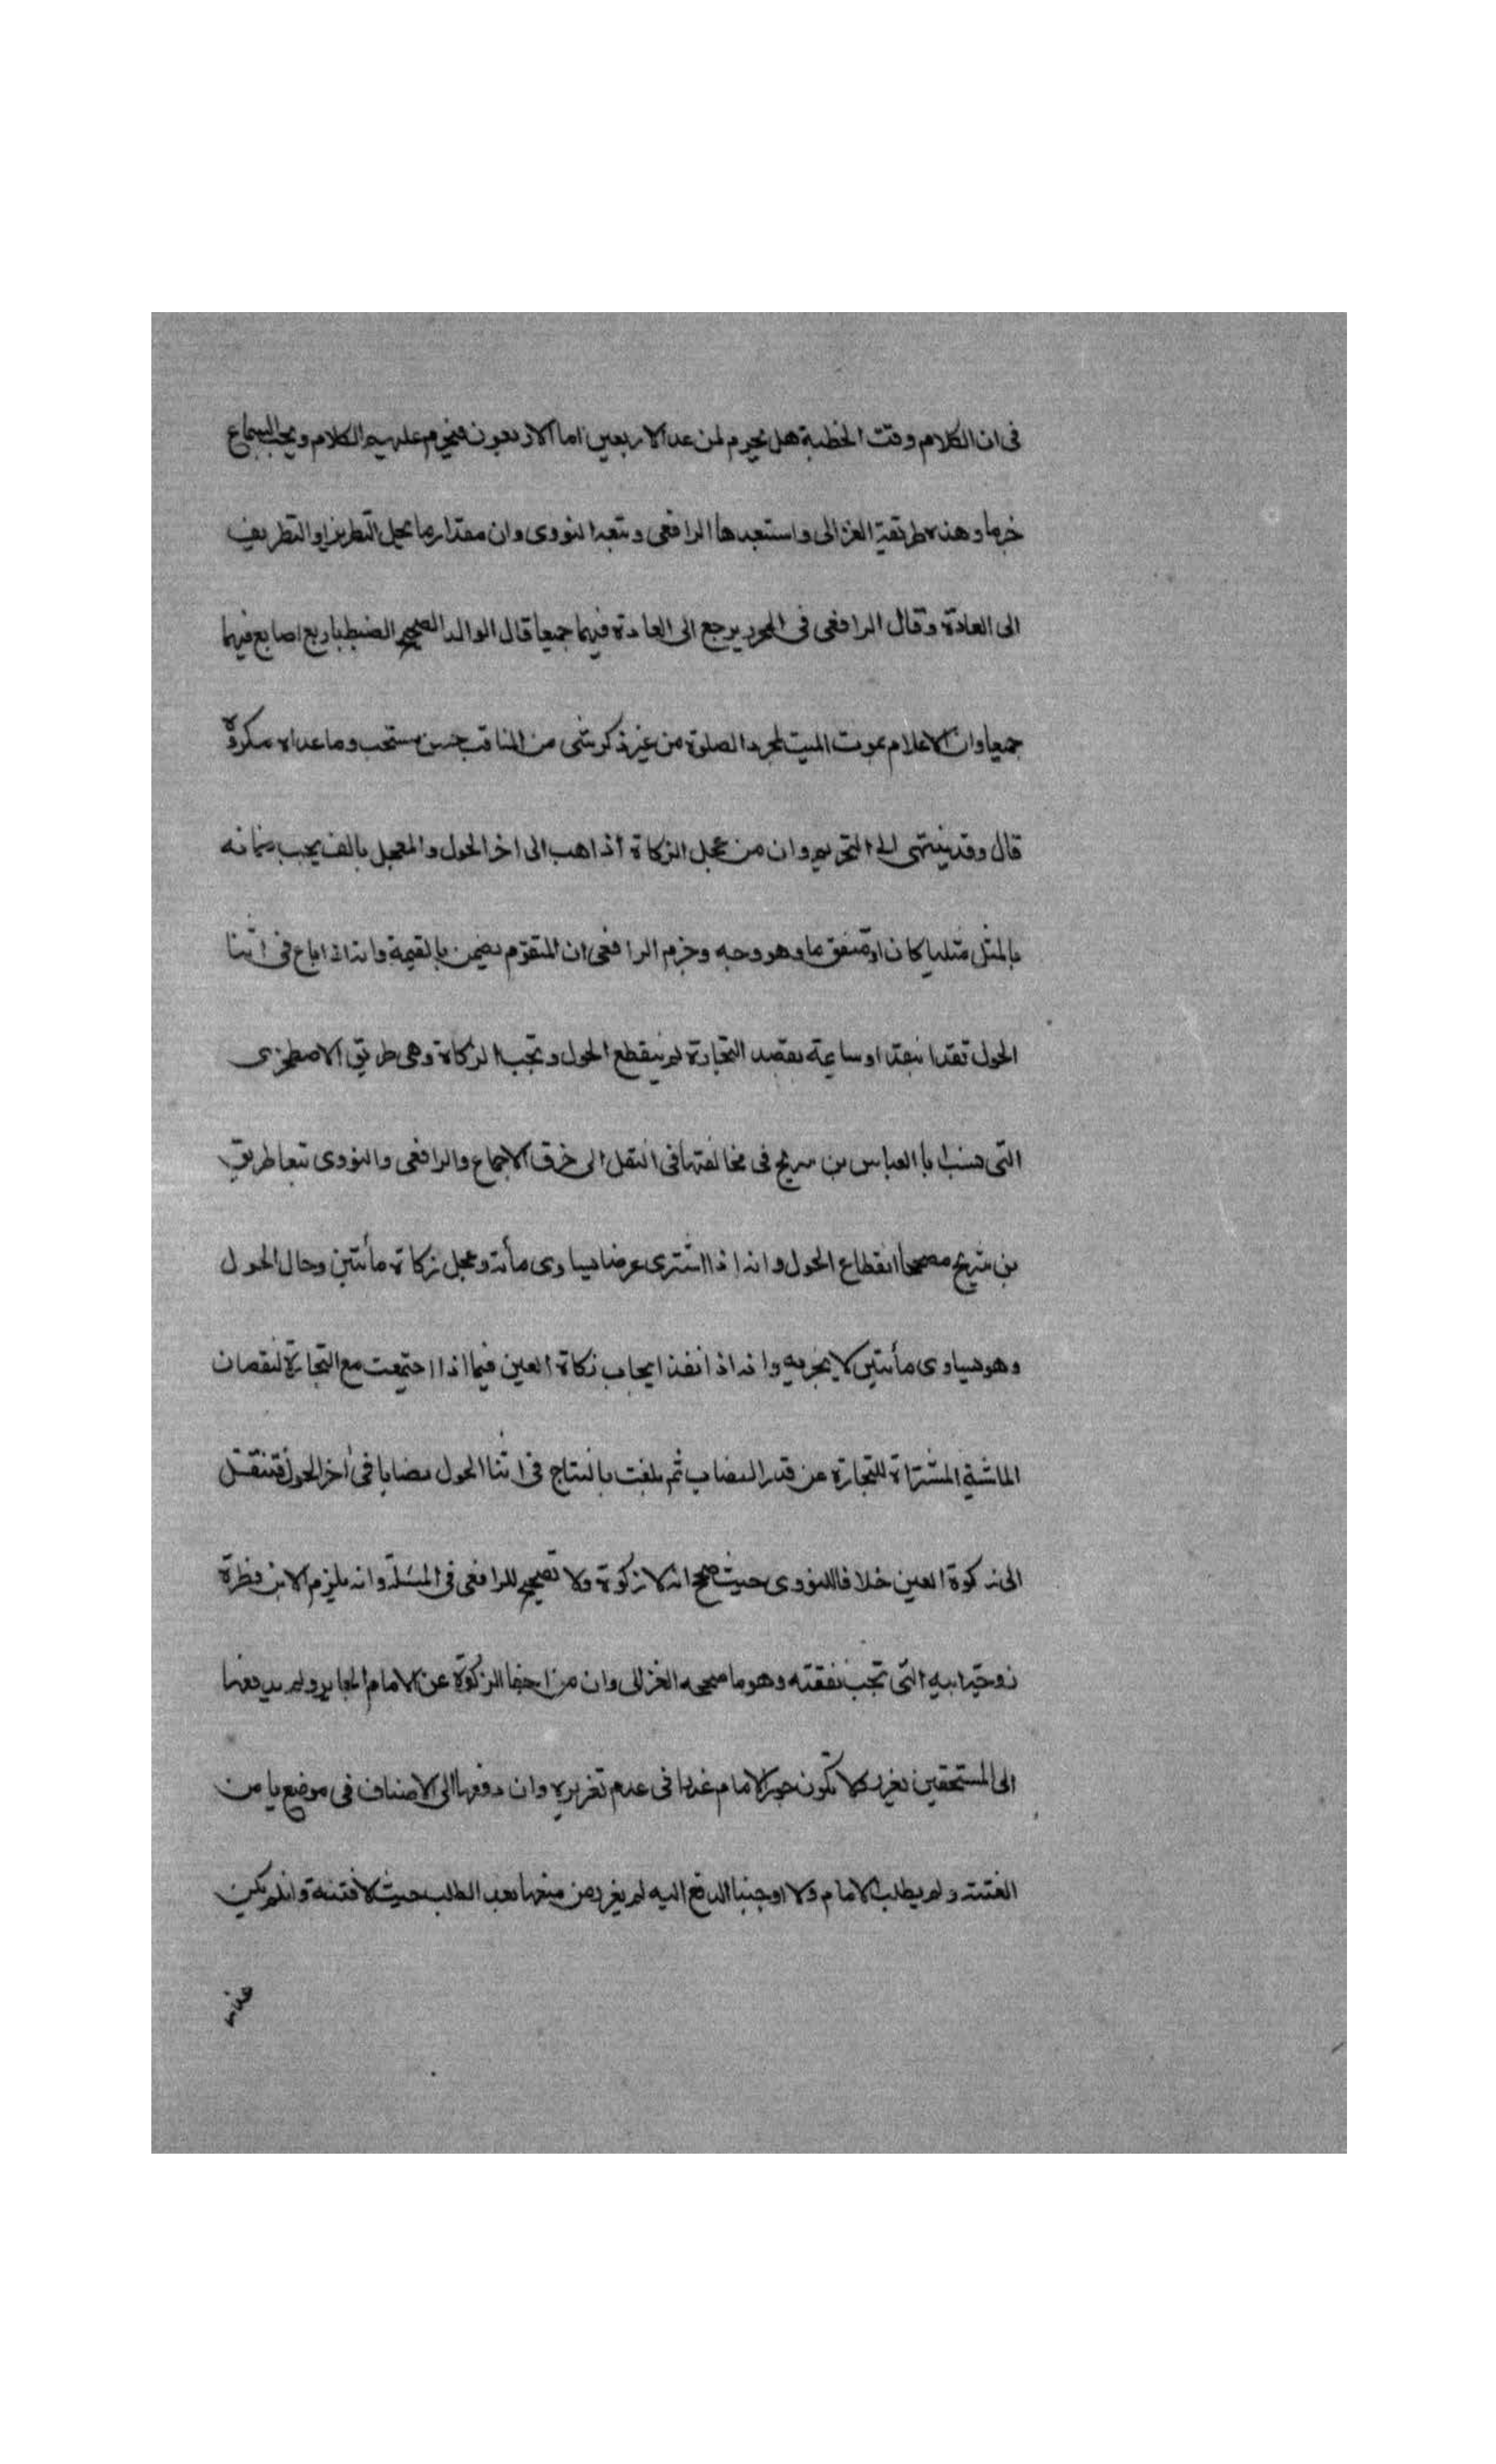 فى ان الكلام وقت الخطبة هل يحرم لمن عدا الاربعين اما الاربعون فيحرم عليهم الكلام ويجب السماع
جزما وهذه طريقة الغزالى واستبعدها الرافعى وتبعه النووى وان مقدار ما يحل التطريز او التطريف
الى العادة وقال الرافعى فى المحرر يرجع الى العادة فيهما جميعا قال الوالد الصحيح الضبط باربع اصابع فيهما
جميعا وان الاعلام بموت الميت لمجرد الصلوة من غير ذكر شى من المناقب حسن مستحب وما عداه مكروه
قال وقد ينتهى الى التحريم وان من عجل الزكاة اذا هب الى اخر الحول والمعجل بالف يجب ضمانه
بالمثل مثليا كان او متقوما وهو وجه وجزم الرافعى ان المتقوم يضمن بالقيمة وانه اذا باع فى اثنا
الحول نقدا بنقد او سايمة بقصد التجارة لم ينقطع الحول وتجب الزكاة وهى طريق الاصطخرى
التى نسب ابا العباس بن سريج فى مخالفتها فى النقل الى خرق الاجماع والرافعى والنووى تبعا طريق
بن شريج مصححا انقطاع الحول وانه اذا اشترى عرضا يساوى مأته وعجل زكاة مأتين وحال الحول
وهو يساوى مأتين لا يجزيه وانه اذا نفذ ايجاب زكاة العين فيما اذا اجتمعت مع التجارة لنقصان
الماشية المشتراة للتجارة عن قدر النصاب ثم بلغت بالنتاج فى اثنا الحول نصابا فى اخر الحول فتنتقل
الى زكوة العين خلافا للنووى حيث صحح انه لا زكوة ولا تصحيح للرافعى فى المسئلة وانه يلزم الابن فطرة
زوجة ابيه التى تجب نفقته وهو ما صححه الغزالى وان من اخفا الزكوة عن الامام الجاير ولم يدفعها
الى المستحقين يعزر كلا تكون جور الامام عذرا فى عدم تعزيره وان دفعها الى الاصناف فى موضع يا من
الفتنه ولم يطلب الامام ولا اوجبنا الدفع اليه لم يعزر ومن منعها بعد الطلب حيث لا فتنة وان لم يكن